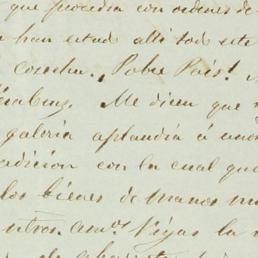 que procedia con ordenes de
han estad alli tod este
cosecha. ¡Pobre Pais!
Me dicen que
galeria aplaudia a
adicion con la cual que
los bienes de manos mu
ntros. am.ˢ Vigas la